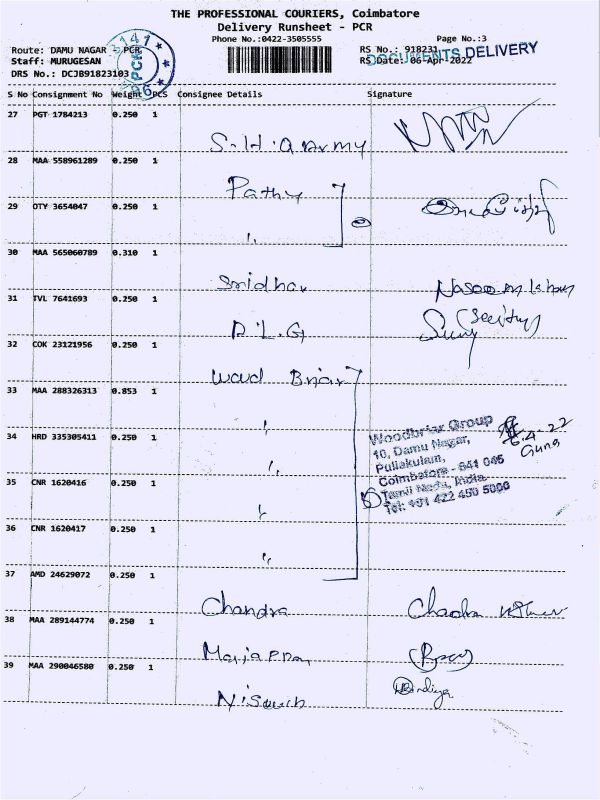 THE PROFESSIONAL COURIERS, Coimbatore
Delivery Runsheet - PCR
Phone No.:0422-3505555 Page No.:3
Route: DAMU NAGAR - PCR RS No.: 918231 DOCUMENTS DELIVERY
Staff: MURUGESAN RS Date: 06-Apr-2022
DRS No.: DCJB91823103
S No Consignment No Weight PCS Consignee Details Signature
27 PGT 1784213 0.250 1
28 MAA 558961289 0.250 1
Pathy
29 OTY 3654047 0.250 1
30 MAA 565060789 0.310 1
Sridhar
31 IVL 7641693 0.250 1
D.L.G
32 COK 23121956 0.250 1
Woud Briar
33 MAA 288326313 0.853 1
34 HRD 335305411 0.250 1
Woodbriar Group
10, Damu Nagar,
Puliakulam,
Coimbatore - 641 045
Tamil Nadu, India
Tel: +91 422 450 5000
6.4.22
Guna
35 CNR 1620416 0.250 1
36 CNR 1620417 0.250 1
37 AMD 24629072 0.250 1
Chandra
38 MAA 289144774 0.250 1
39 MAA 290046580 0.250 1